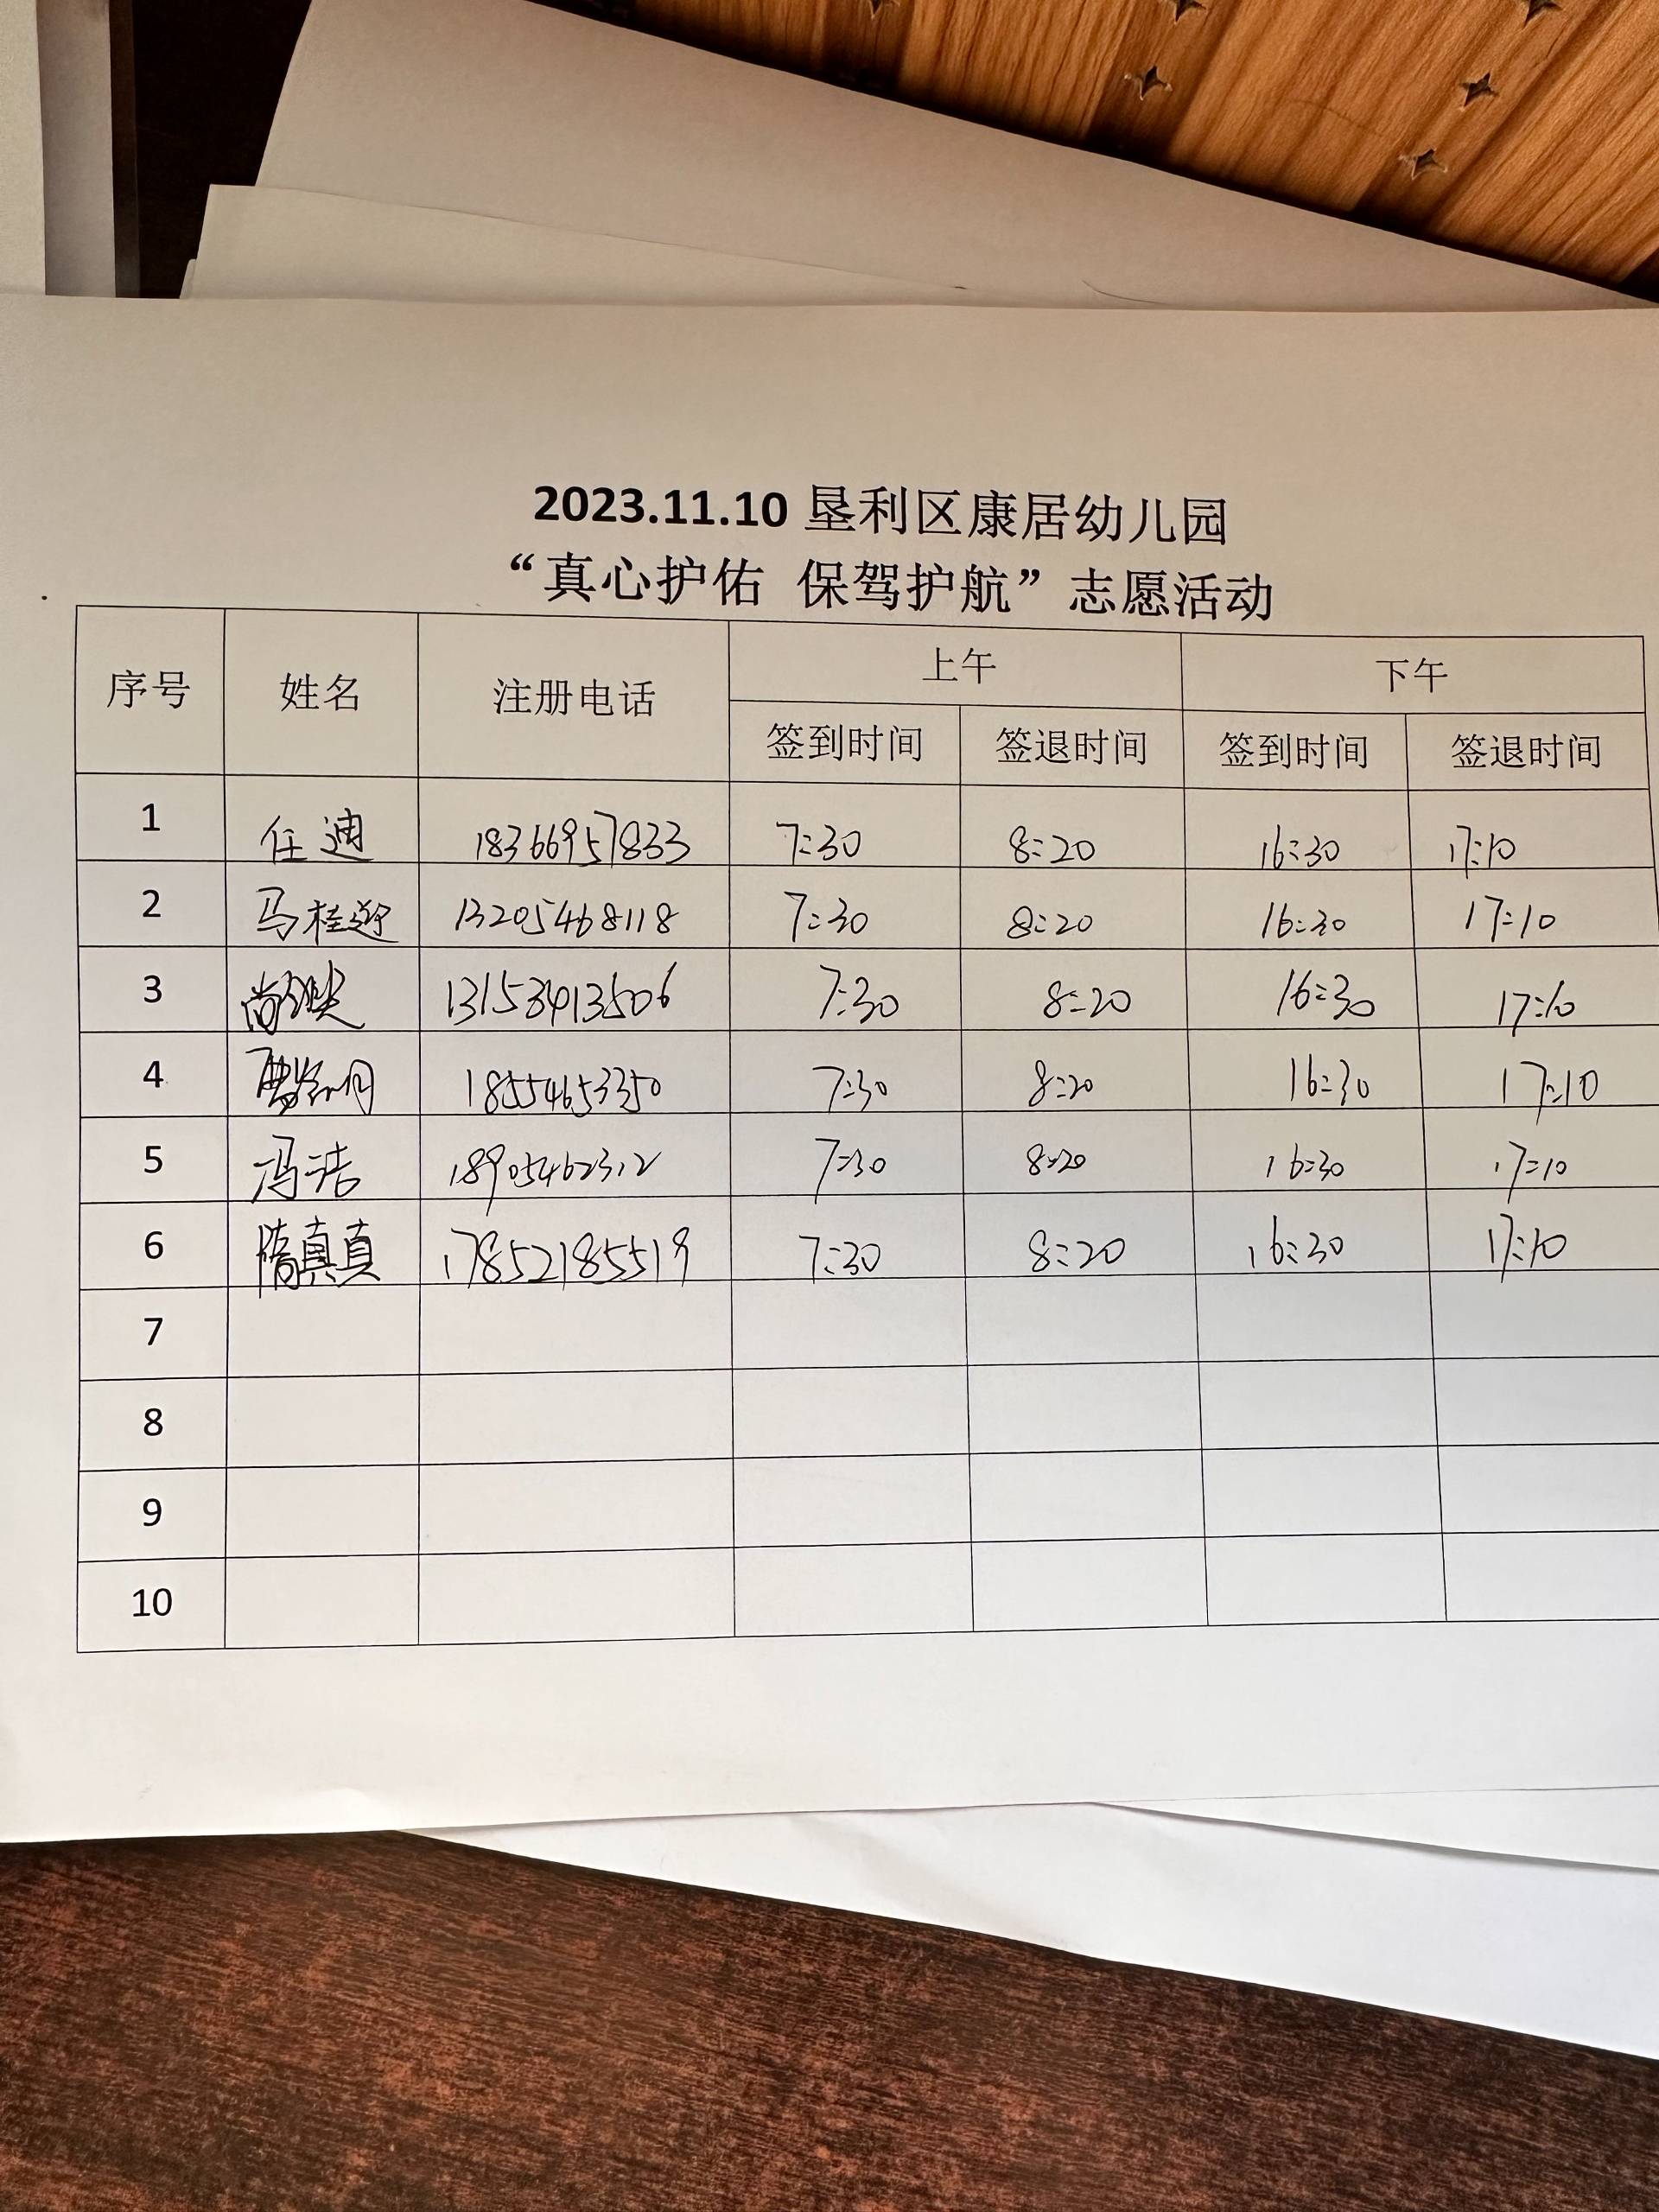 2023.11.10 垦利区康居幼儿园
“真心护佑 保驾护航”志愿活动
序号 姓名 注册电话 上午 下午
签到时间 签退时间 签到时间 签退时间
1 任迪 18366957833 7:30 8:20 16:30 17:10
2 马桂迎 13205468118 7:30 8:20 16:30 17:10
3 13153413506 7:30 8:20 16:30 17:10
4 18554653350 7:30 8:20 16:30 17:10
5 冯洁 18905462312 7:30 8:20 16:30 17:10
6 隋真真 17852185519 7:30 8:20 16:30 17:10
7
8
9
10